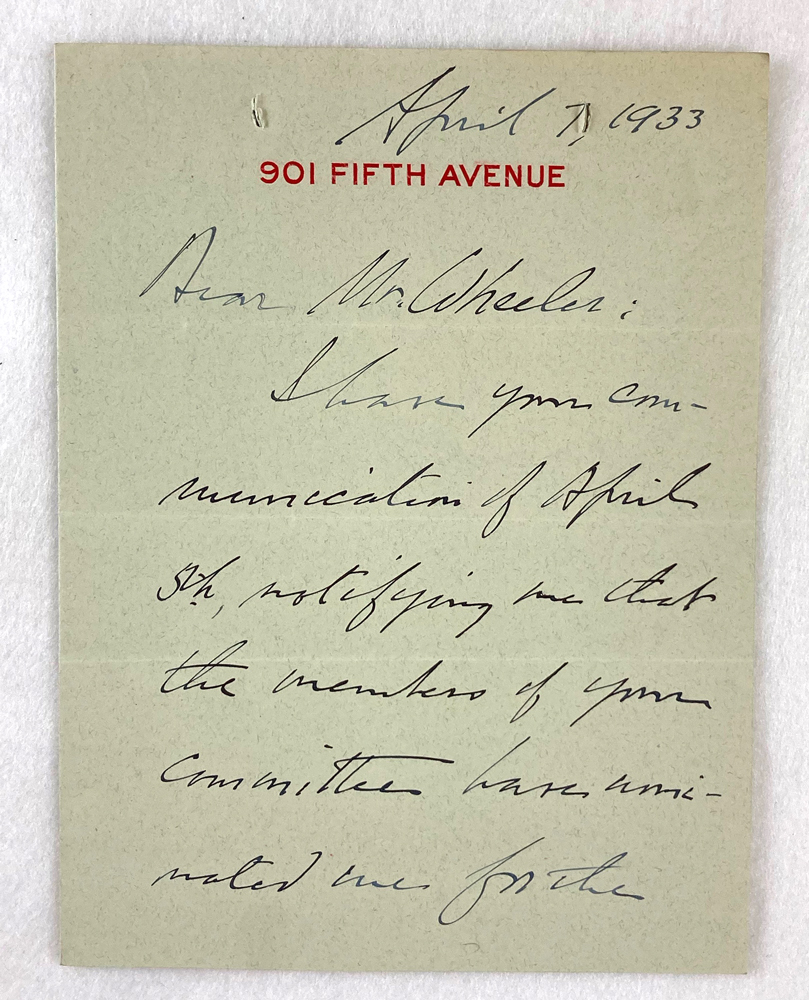 April 7, 1933
901 FIFTH AVENUE
Dear Mr. Wheeler:
I have your com-
munication of April
5th, notifying me that
the members of your
committee have nomi-
nated me for the